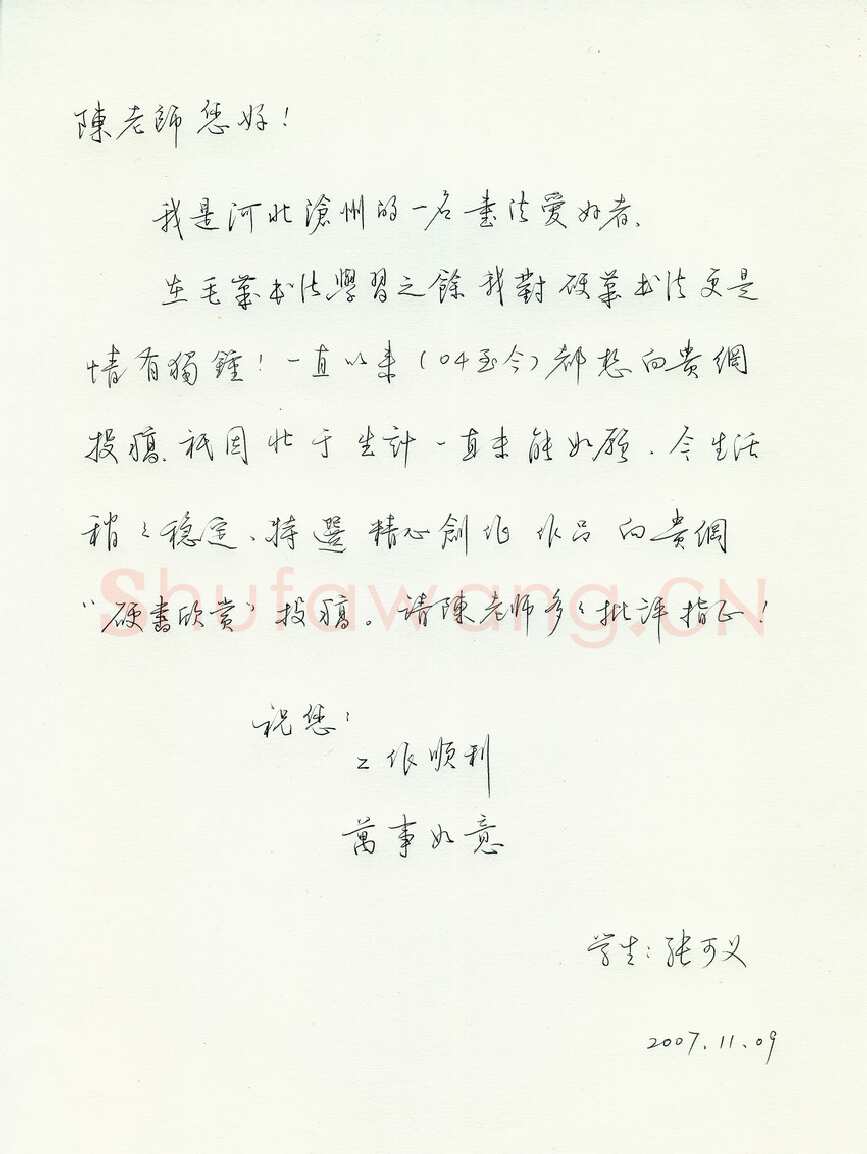 陳老師您好！
我是河北滄州的一名書法愛好者.
在毛筆书法學習之餘我對硬筆书法更是
情有獨鍾！一直以来（04至今）都想向貴網
投稿.祇因忙于生計一直未能如愿.今生活
稍々穏定、特選精心創作作品向貴網
“硬書欣賞”投稿。请陳老师多々批评指正！
Shufawang.CN
祝您：
工作顺利
萬事如意
学生：张可义
2007.11.09